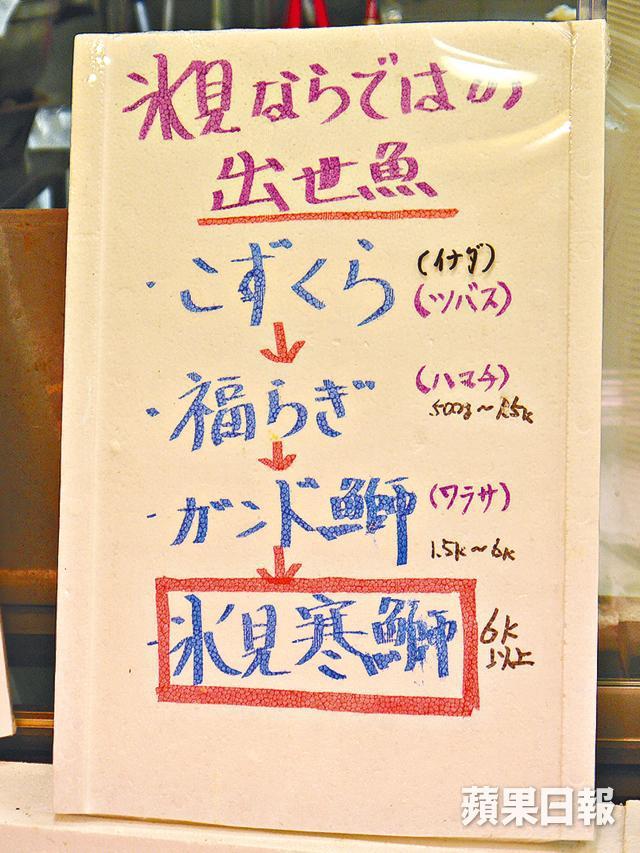 氷見ならではの
出世魚
・こずくら (イナダ)
(ツバス)
↓
・福らぎ (ハマチ)
500g～1.5K
↓
・ガンド鰤 (ワラサ)
1.5K～6K
↓
・氷見寒鰤 6K
以上
蘋果日報